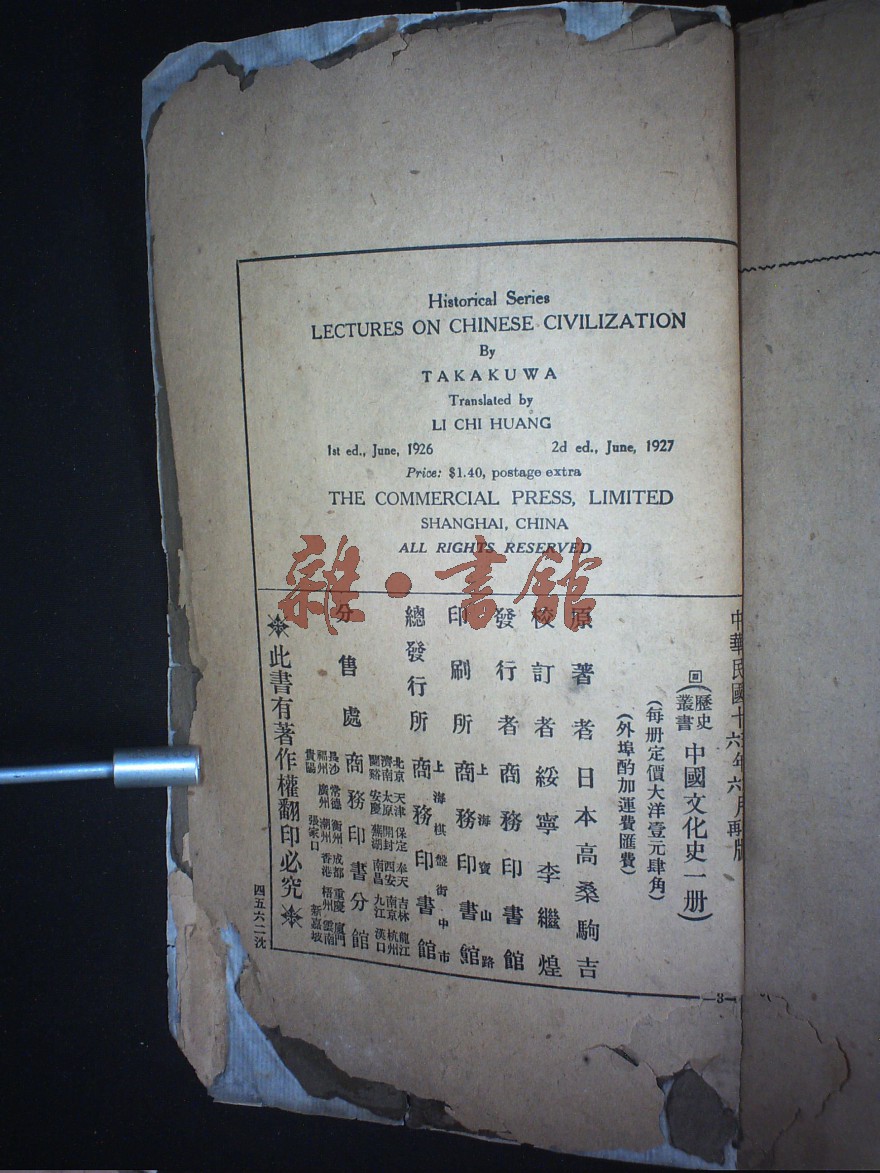 Historical Series
LECTURES ON CHINESE CIVILIZATION
By
TAKAKUWA
Translated by
LI CHI HUANG
1st ed., June, 1926 2d ed., June, 1927
Price: $1.40, postage extra
THE COMMERCIAL PRESS, LIMITED
SHANGHAI, CHINA
ALL RIGHTS RESERVED
雜·書館
中華民國十六年六月再版
(歷史叢書 中國文化史一册)
(每册定價大洋壹元肆角)
(外埠酌加運費匯費)
原著者 日本高桑駒吉
校訂者 綏寧李繼煌
發行者 商務印書館
印刷所 上海寶山路 商務印書館
總發行所 上海棋盤街中市 商務印書館
分售處 商務印書分館
北京 天津 保定 奉天 吉林 龍江
濟南 太原 開封 西安 南京 杭州
蘭谿 安慶 蕪湖 南昌 九江 漢口
長沙 常德 衡州 成都 重慶 廈門
福州 廣州 潮州 香港 梧州 雲南
貴陽 張家口 新嘉坡
此書有著作權翻印必究
四五六二沈
—3—